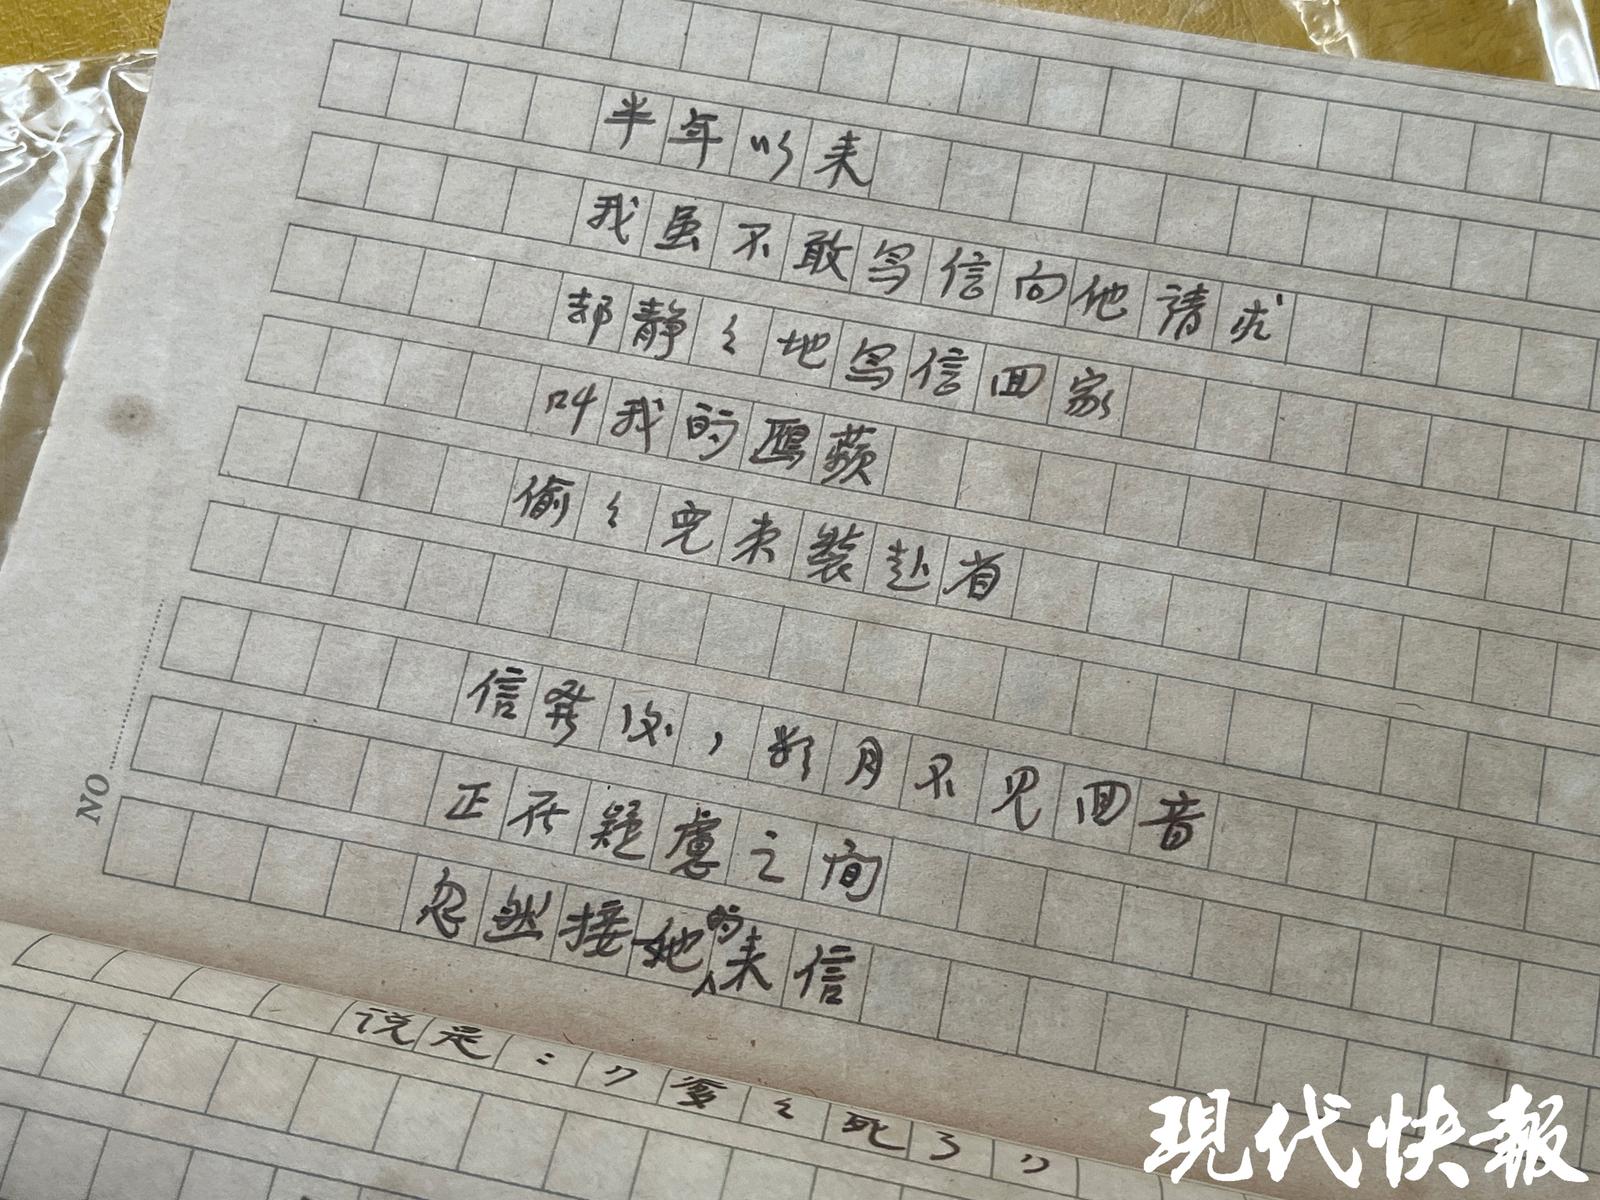 半年以来
我虽不敢写信向他请求
却静々地写信回家
叫我的鴎蘋
偷々児束装赴省
信发后，数月不见回音
正在疑慮之间
忽然接她的来信
说是："爹々死了"
NO
现代快報